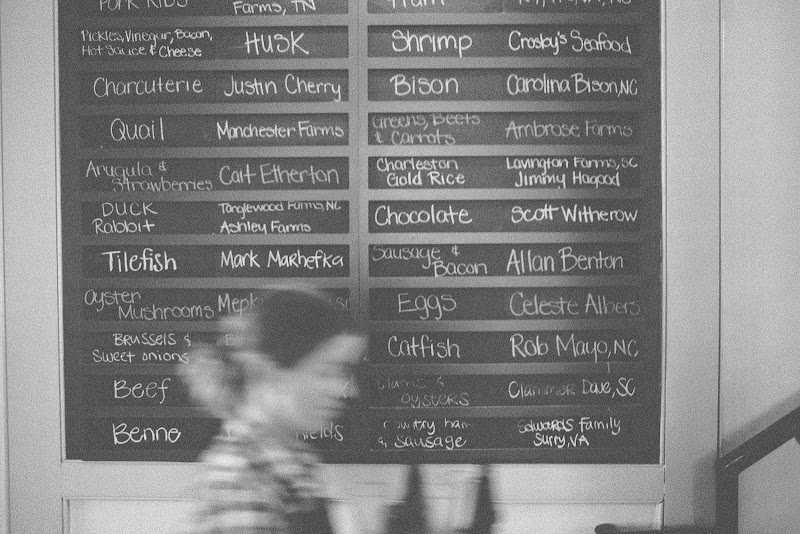 Pork Ribs
Farms, TN
Ham
Pickles, Vinegar, Bacon,
Hot Sauce & Cheese
HUSK
Shrimp
Crosby's Seafood
Charcuterie
Justin Cherry
Bison
Carolina Bison, NC
Quail
Manchester Farms
Greens, Beets
& Carrots
Ambrose Farms
Arugula &
Strawberries
Cait Etherton
Charleston
Gold Rice
Lavington Farms, SC
Jimmy Hagood
DUCK
Rabbit
Tanglewood Farms, NC
Ashley Farms
Chocolate
Scott Witherow
Tilefish
Mark Marhefka
Sausage &
Bacon
Allan Benton
Oyster
Mushrooms
Mepki
Eggs
Celeste Albers
BRUSSELS &
Sweet onions
Catfish
Rob Mayo, NC
Beef
Clams &
oysters
Clammer Dave, SC
Benne
ields
Country ham
& sausage
Edwards Family
Surry, VA